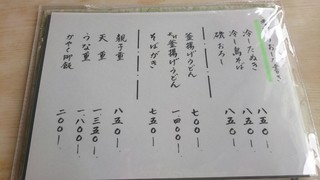 冷したぬき 八五〇ー
冷し鳥そば 八五〇ー
磯おろし 八五〇ー
釜揚げうどん 七〇〇ー
大判釜揚げうどん 一四〇〇ー
そばがき 七五〇ー
親子重 八五〇ー
天重 一、三五〇ー
うな重 一、八〇〇ー
かやく御飯 二〇〇ー